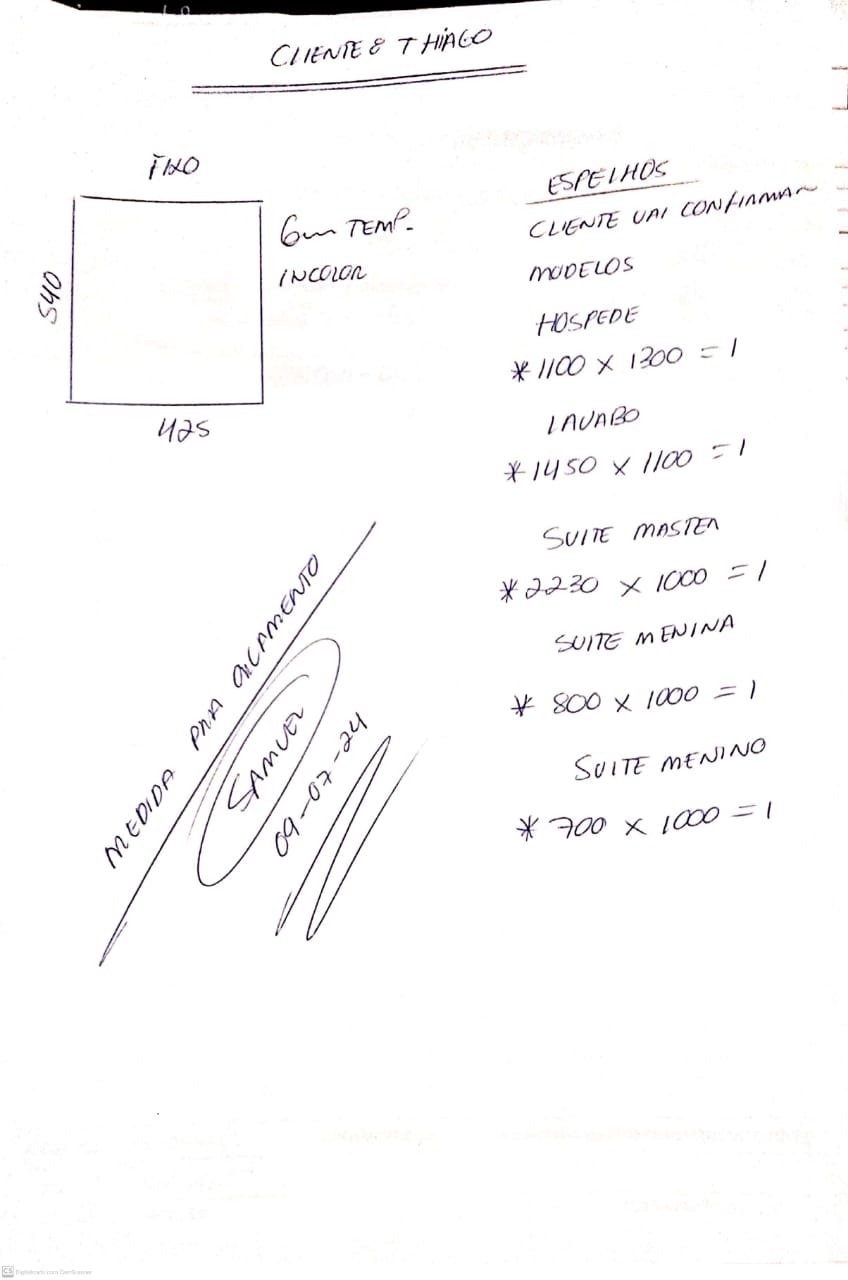 CLIENTE: THIAGO
FIXO
540
425
6mm TEMP.
INCOLOR
ESPELHOS
CLIENTE VAI CONFIRMAR
MODELOS
HOSPEDE
* 1100 x 1300 = 1
LAVABO
* 1450 x 1100 = 1
SUITE MASTER
* 2230 x 1000 = 1
SUITE MENINA
* 800 x 1000 = 1
SUITE MENINO
* 700 x 1000 = 1
MEDIDA PRA ORCAMENTO
SAMUEL
09-07-24
CS Digitalizado com CamScanner